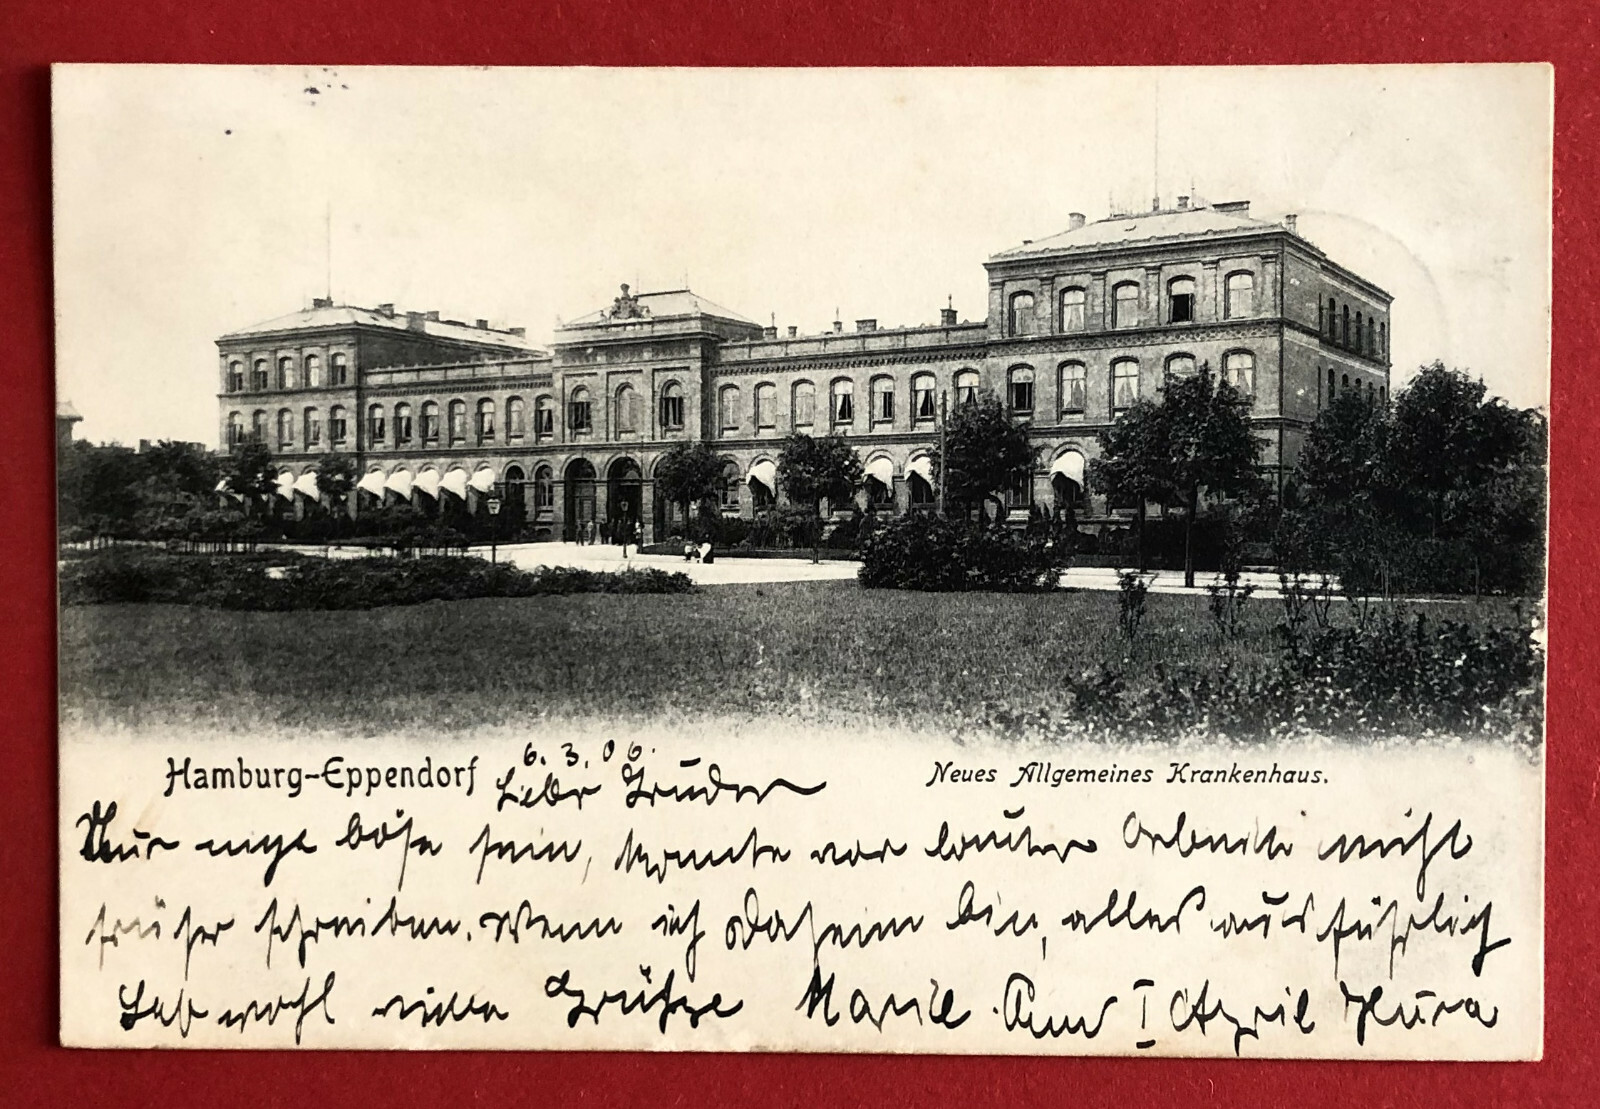 Hamburg-Eppendorf
Neues Allgemeines Krankenhaus.
6. 3. 06.
Liebe
Nur nicht böse sein, konnte vor lauter Arbeit nicht
früher schreiben. Wenn ich daheim bin, alles ausführlich
Leb wohl viele Grüße Marie. Am I April Hura